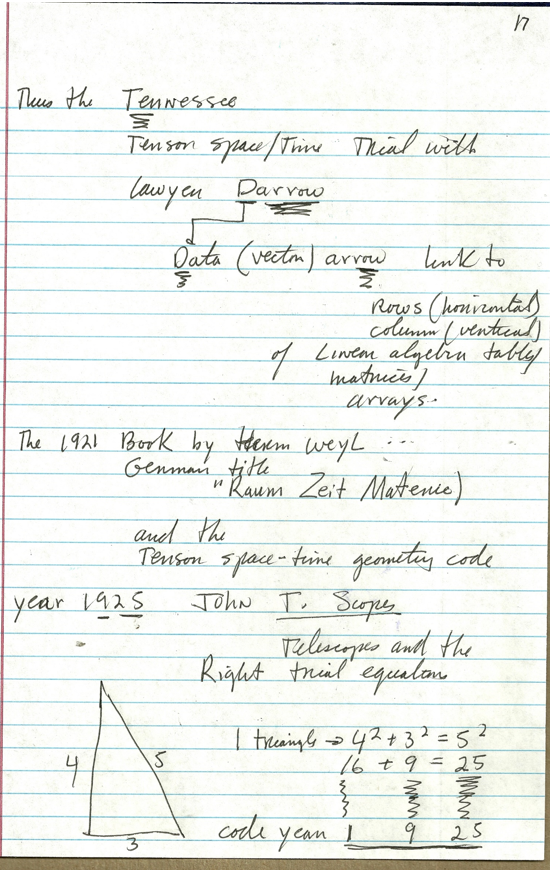 17
Thus the Tennessee
Tensor space/time Trial with
lawyer Darrow
Data (vector) arrow link to
rows (horizontal)
column (vertical)
of Linear algebra tables/
matrices/
arrays.
The 1921 Book by Herm Weyl ...
German title
"Raum Zeit Materie)
and the
Tensor space-time geometry code
year 1925 John T. Scopes
Telescopes and the
Right trial equation
1 triangle → 4² + 3² = 5²
16 + 9 = 25
4 5
3
code year 1 9 25